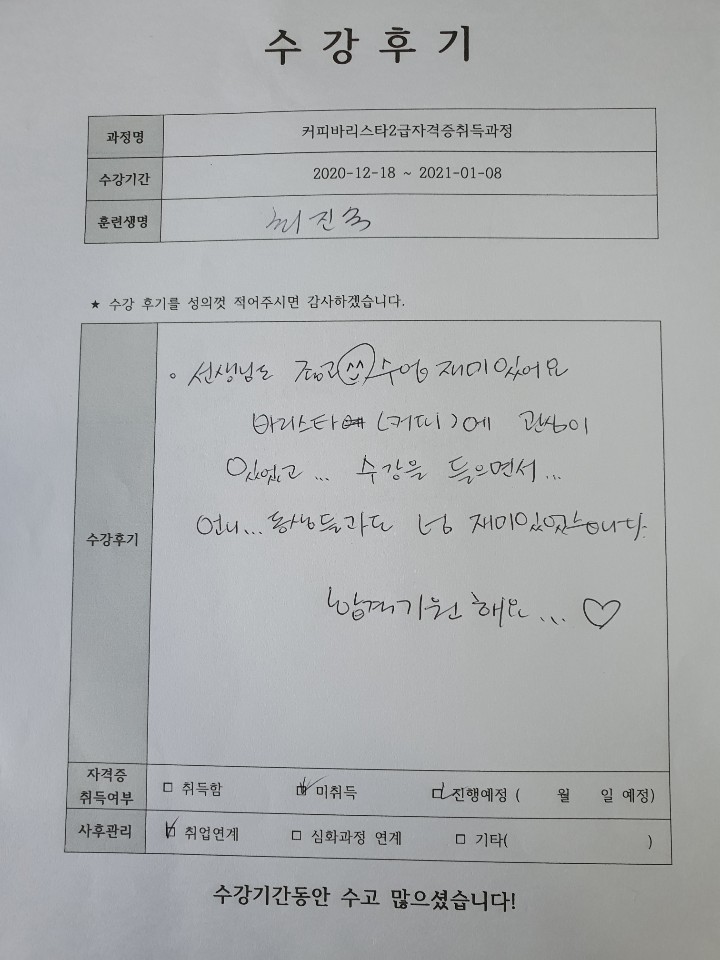 수 강 후 기
과정명 커피바리스타2급자격증취득과정
수강기간 2020-12-18 ~ 2021-01-08
훈련생명 최진숙
★ 수강 후기를 성의껏 적어주시면 감사하겠습니다.
수강후기
。선생님도 좋고 ^^ 수업 재미있어요
바리스타 (커피)에 관심이
있었고... 수강을 들으면서...
언니... 동생들과도 넘 재미있었습니다.
합격기원 해요... ♡
자격증 취득여부 □ 취득함 ☑ 미취득 ☑ 진행예정 ( 월 일 예정)
사후관리 ☑ 취업연계 □ 심화과정 연계 □ 기타( )
수강기간동안 수고 많으셨습니다!